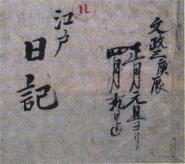 文政三庚辰
正月元旦ヨリ
四月九日迄
江戸
日記